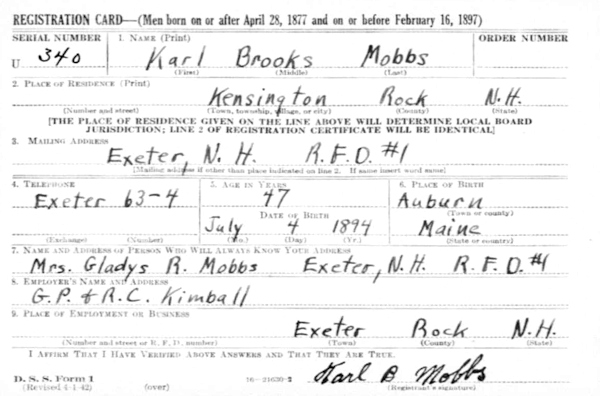 REGISTRATION CARD—(Men born on or after April 28, 1877 and on or before February 16, 1897)
SERIAL NUMBER 1. NAME (Print) ORDER NUMBER
U 340 Karl Brooks Mobbs
(First) (Middle) (Last)
2. PLACE OF RESIDENCE (Print)
Kensington Rock N.H.
(Number and street) (Town, township, village, or city) (County) (State)
[THE PLACE OF RESIDENCE GIVEN ON THE LINE ABOVE WILL DETERMINE LOCAL BOARD
JURISDICTION; LINE 2 OF REGISTRATION CERTIFICATE WILL BE IDENTICAL]
3. MAILING ADDRESS
Exeter, N. H. R.F.D. #1
[Mailing address if other than place indicated on line 2. If same insert word same]
4. TELEPHONE 5. AGE IN YEARS 6. PLACE OF BIRTH
Exeter 63-4 47 Auburn
DATE OF BIRTH (Town or county)
July 4 1894 Maine
(Exchange) (Number) (Mo.) (Day) (Yr.) (State or country)
7. NAME AND ADDRESS OF PERSON WHO WILL ALWAYS KNOW YOUR ADDRESS
Mrs. Gladys R. Mobbs Exeter, N.H. R.F.D. #1
8. EMPLOYER'S NAME AND ADDRESS
G.P. & R.C. Kimball
9. PLACE OF EMPLOYMENT OR BUSINESS
Exeter Rock N.H.
(Number and street or R. F. D. number) (Town) (County) (State)
I AFFIRM THAT I HAVE VERIFIED ABOVE ANSWERS AND THAT THEY ARE TRUE.
D. S. S. Form 1 16—21630-2 Karl B Mobbs
(Revised 4-1-42) (over) (Registrant's signature)